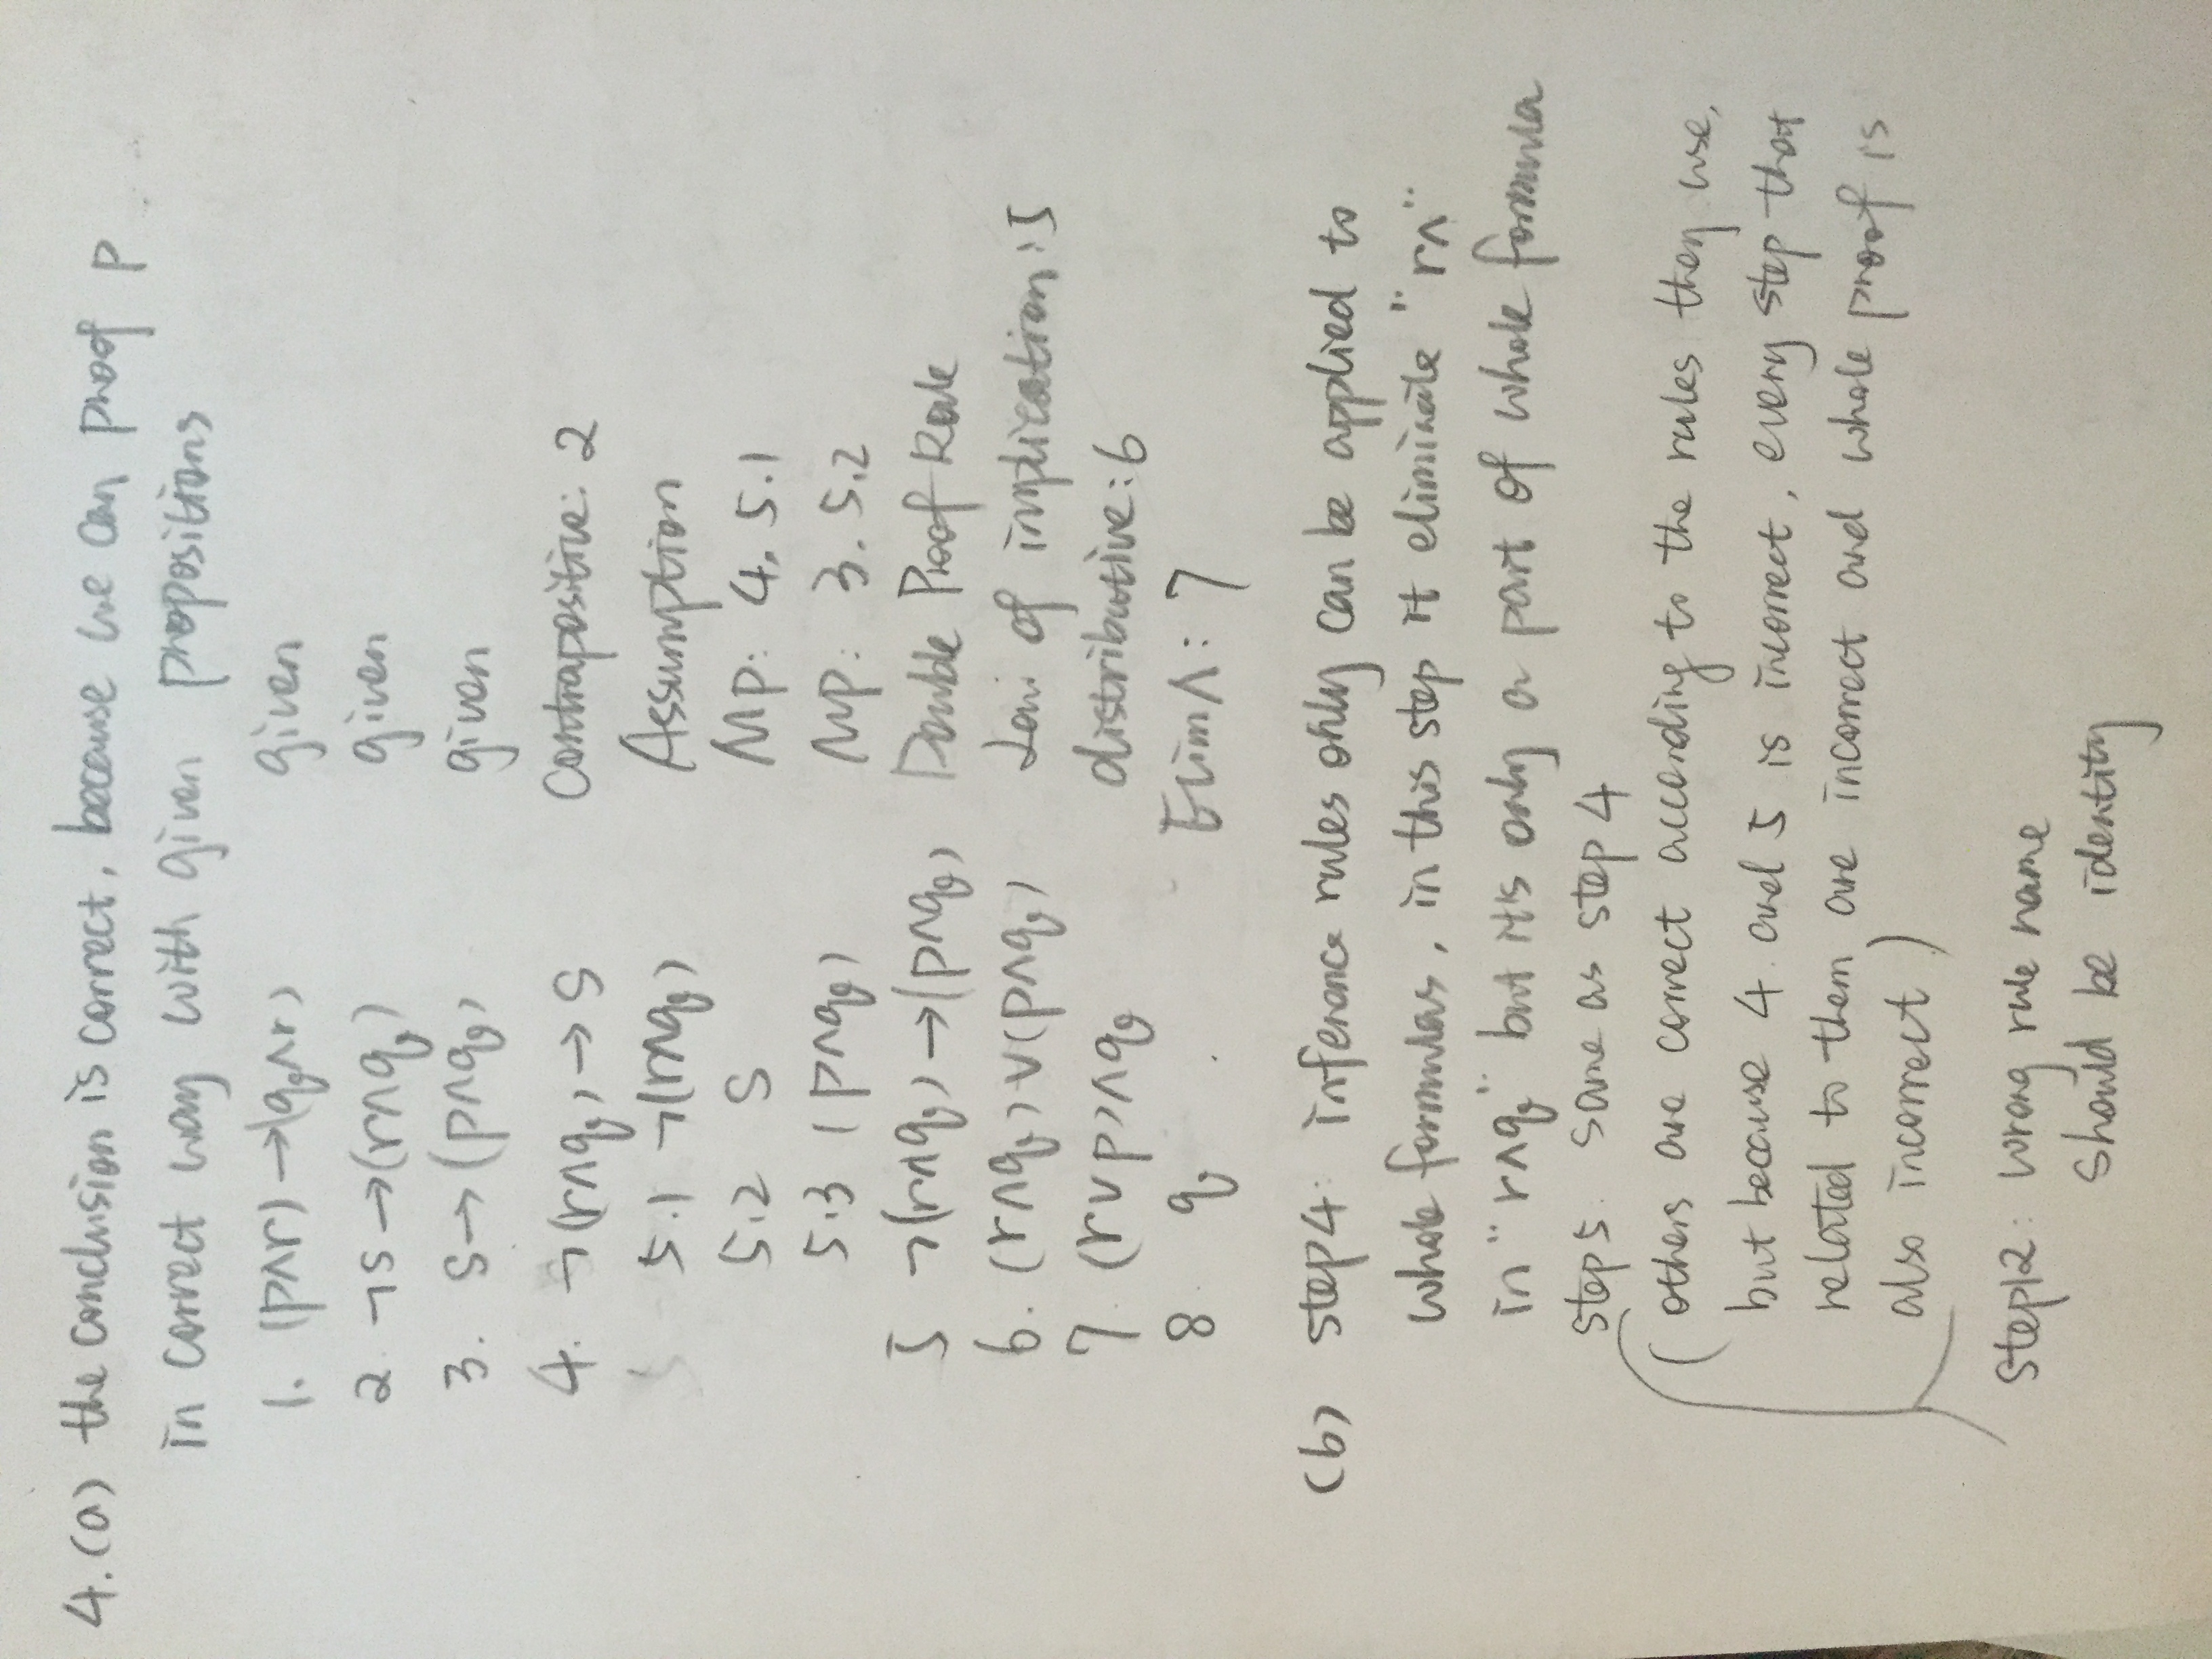 4. (a) the conclusion is correct, because we can proof p
in correct way with given propositions
1. (p∧r) →(q∧r) given
2. ¬s →(r∧q) given
3. s→ (p∧q) given
4. ¬(r∧q) → s Contrapositive: 2
5.1 ¬(r∧q) Assumption
5.2 s Mp: 4, 5.1
5.3 (p∧q) Mp: 3. 5.2
5 ¬(r∧q) →(p∧q) Double Proof Rule
6. (r∧q) ∨(p∧q) Law of implication: 5
7. (r∨p)∧q distributive: 6
8. q Elim∧: 7
(b) step4: inference rules only can be applied to
whole formulas, in this step it eliminate "r∧"
in "r∧q" but it's only a part of whole formula
step5. same as step 4
(others are correct according to the rules they use,
but because 4 and 5 is incorrect, every step that
related to them are incorrect and whole proof is
also incorrect)
step12: wrong rule name
should be identity